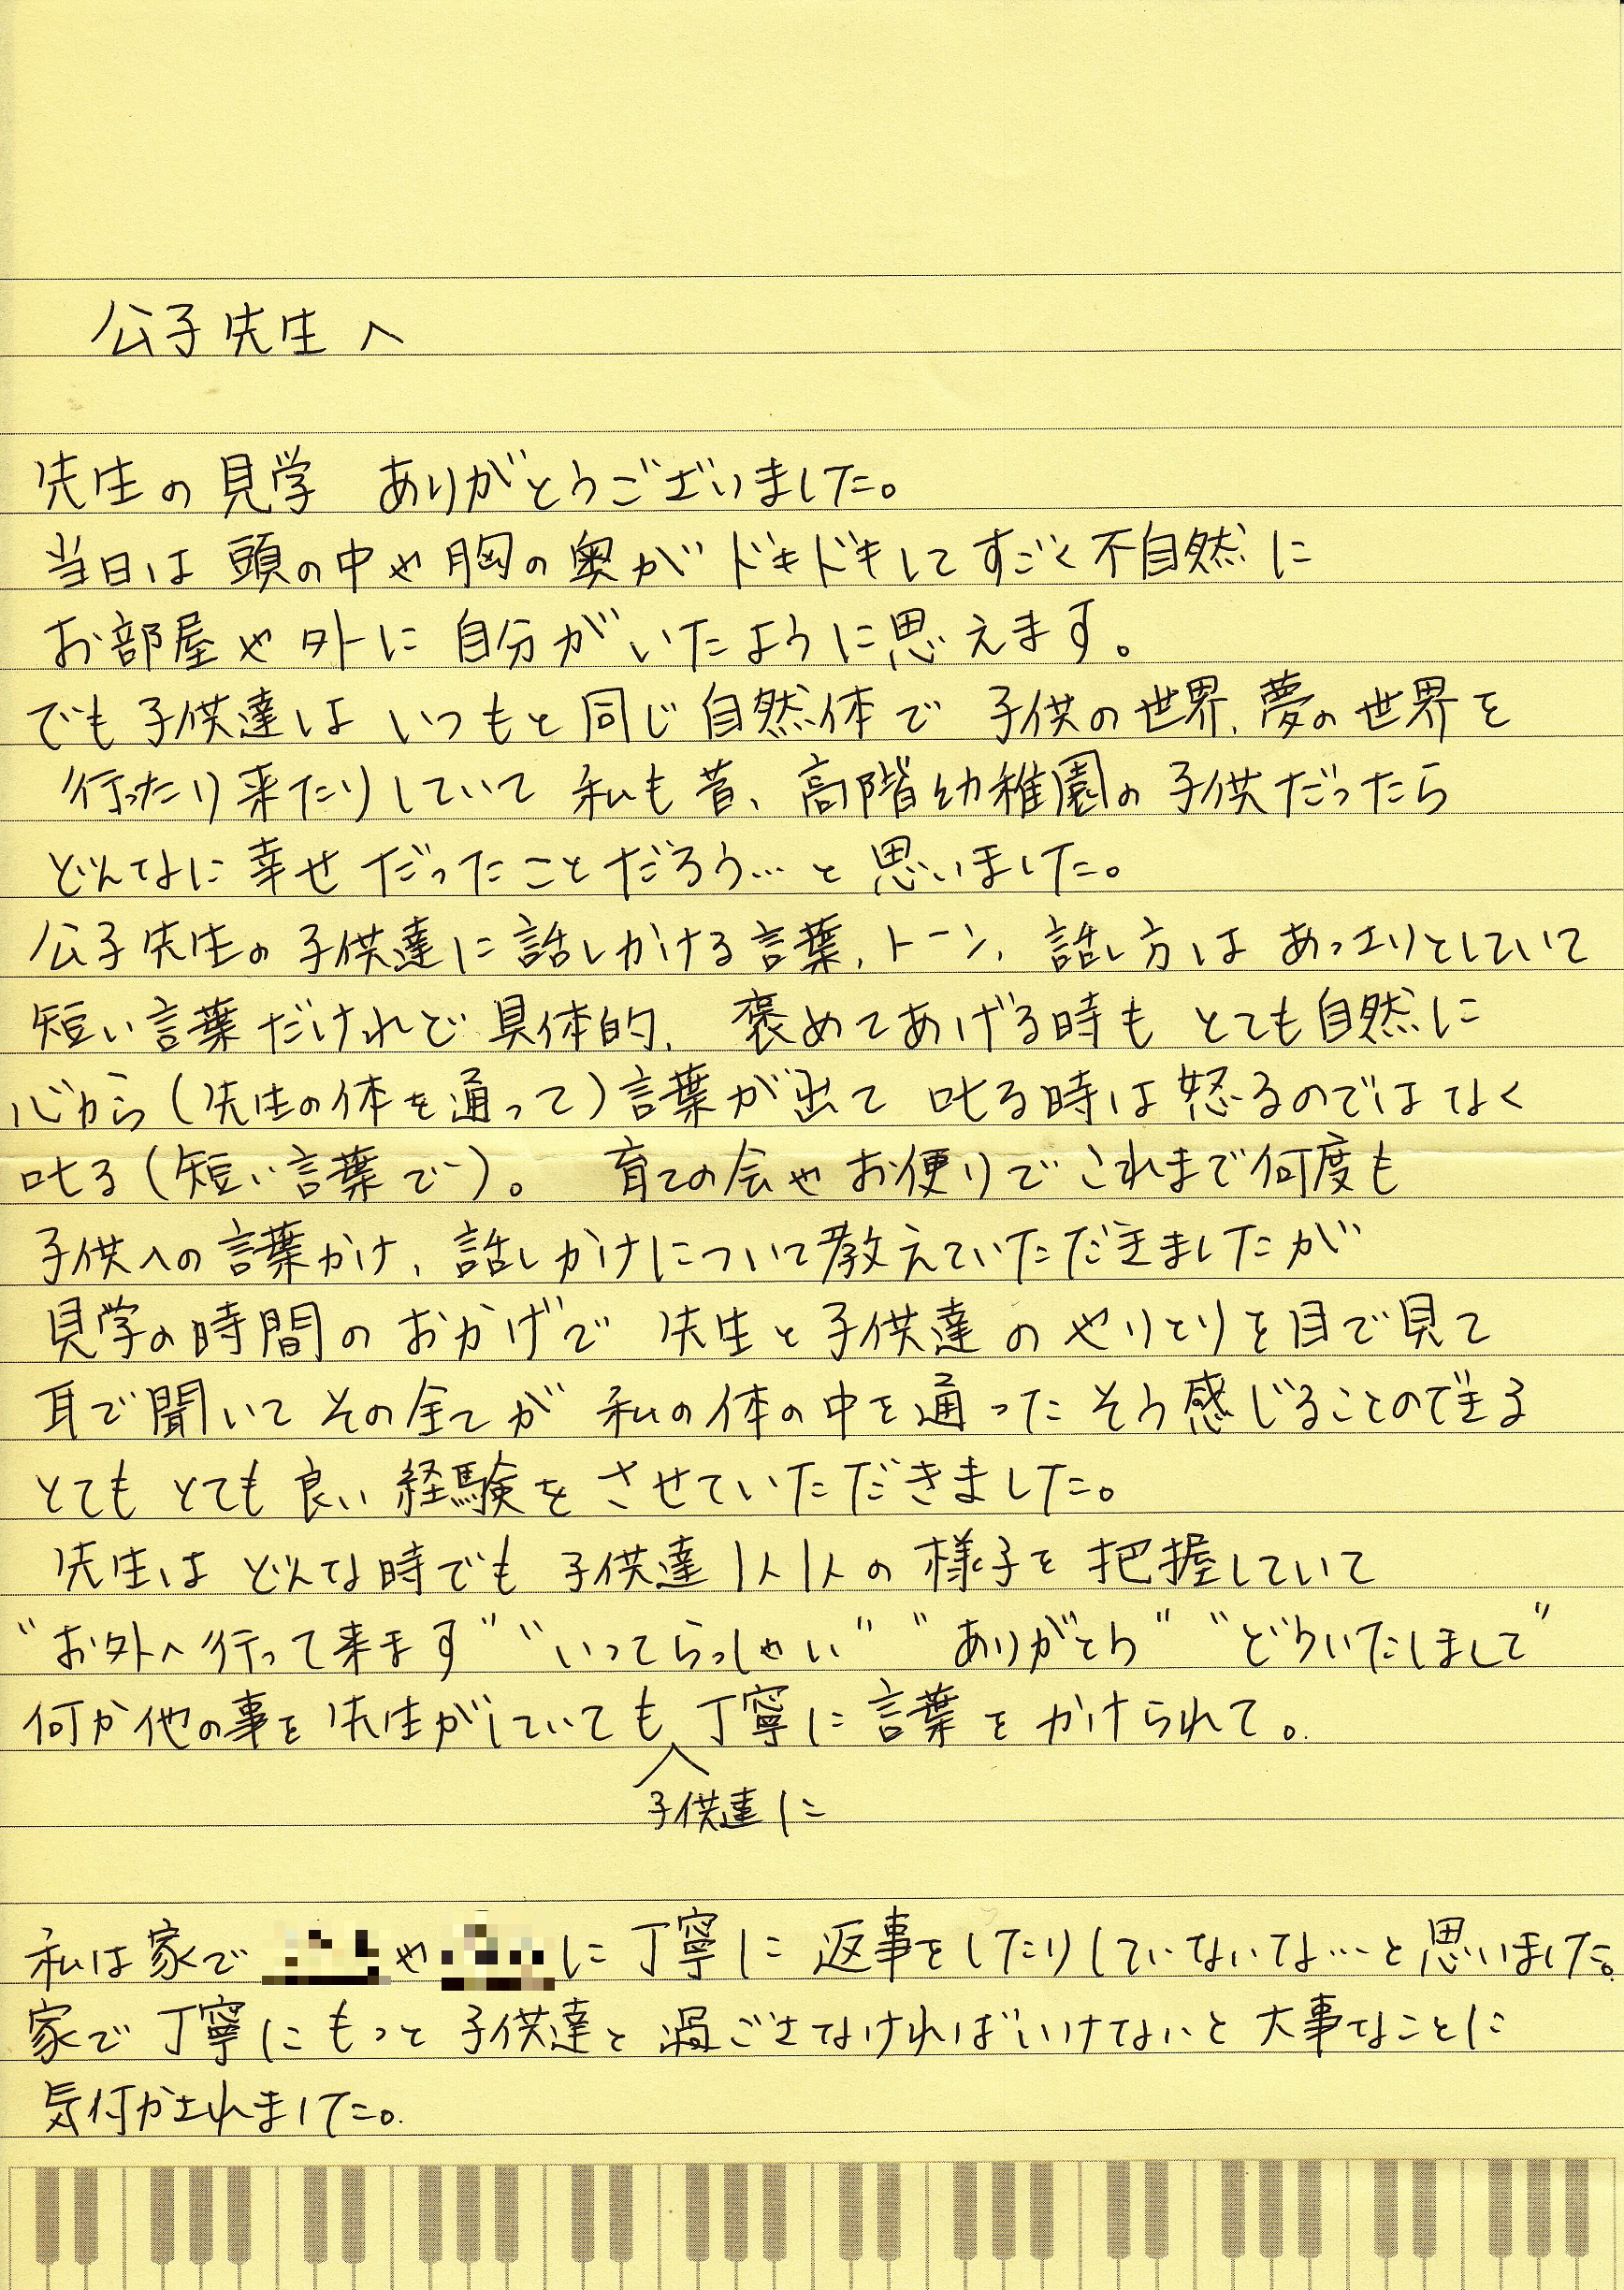 公子先生へ
先生の見学 ありがとうございました。
当日は頭の中や胸の奥がドキドキしてすごく不自然に
お部屋や外に自分がいたように思えます。
でも子供達はいつもと同じ自然体で子供の世界、夢の世界を
行ったり来たりしていて私も昔、高階幼稚園の子供だったら
どんなに幸せだったことだろう…と思いました。
公子先生の子供達に話しかける言葉、トーン、話し方はあっさりとしていて
短い言葉だけれど具体的、褒めてあげる時もとても自然に
心から(先生の体を通って)言葉が出て叱る時は怒るのではなく
叱る(短い言葉で)。育ての会やお便りでこれまで何度も
子供への言葉かけ、話しかけについて教えていただきましたが
見学の時間のおかげで先生と子供達のやりとりを目で見て
耳で聞いてその全てが私の体の中を通ったそう感じることのできる
とてもとても良い経験をさせていただきました。
先生はどんな時でも子供達1人1人の様子を把握していて
"お外へ行って来ます""いってらっしゃい""ありがとう""どういたしまして"
何か他の事を先生がしていても丁寧に言葉をかけられて。
子供達に
私は家でやに丁寧に返事をしたりしていないな…と思いました。
家で丁寧にもっと子供達と過ごさなければいけないと大事なことに
気付かされました。